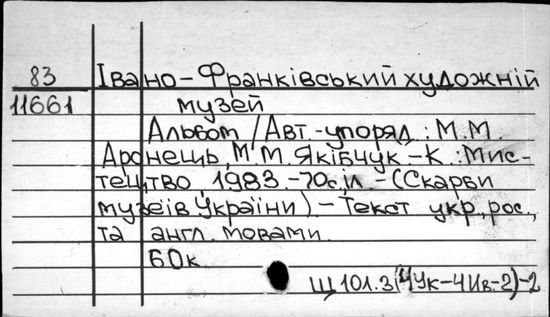 83 Івано-Франківський художній
11661 музей
Альбом /Авт.-упоряд.: М.М.
Аронець, М.М. Якібчук.-К.: Мис-
тецтво, 1983.-70с.іл.-(Скарби
музеїв України).-Текст укр., рос.,
та англ. мовами.
60к
Щ101.3(4Ук-4Ив-2)-2